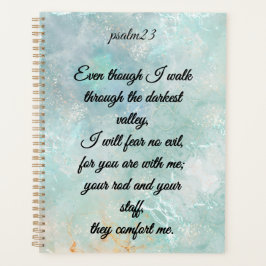 psalm23
Even though I walk
through the darkest
valley,
I will fear no evil,
for you are with me;
your rod and your
staff,
they comfort me.